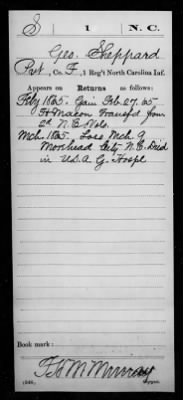 S 1 N. C.
Geo. Sheppard
Pvt, Co. F, 1 Reg't North Carolina Inf.
Appears on Returns as follows:
Feby 1865. Gain Feb. 27. 65
Ft Macon Transfd from
2d N. C. Vols.
Mch. 1865. Loss Mch. 9
Morehead City N. C. Died
in U.S.A. G. Hospl
Book mark:
(546)
Copyist.